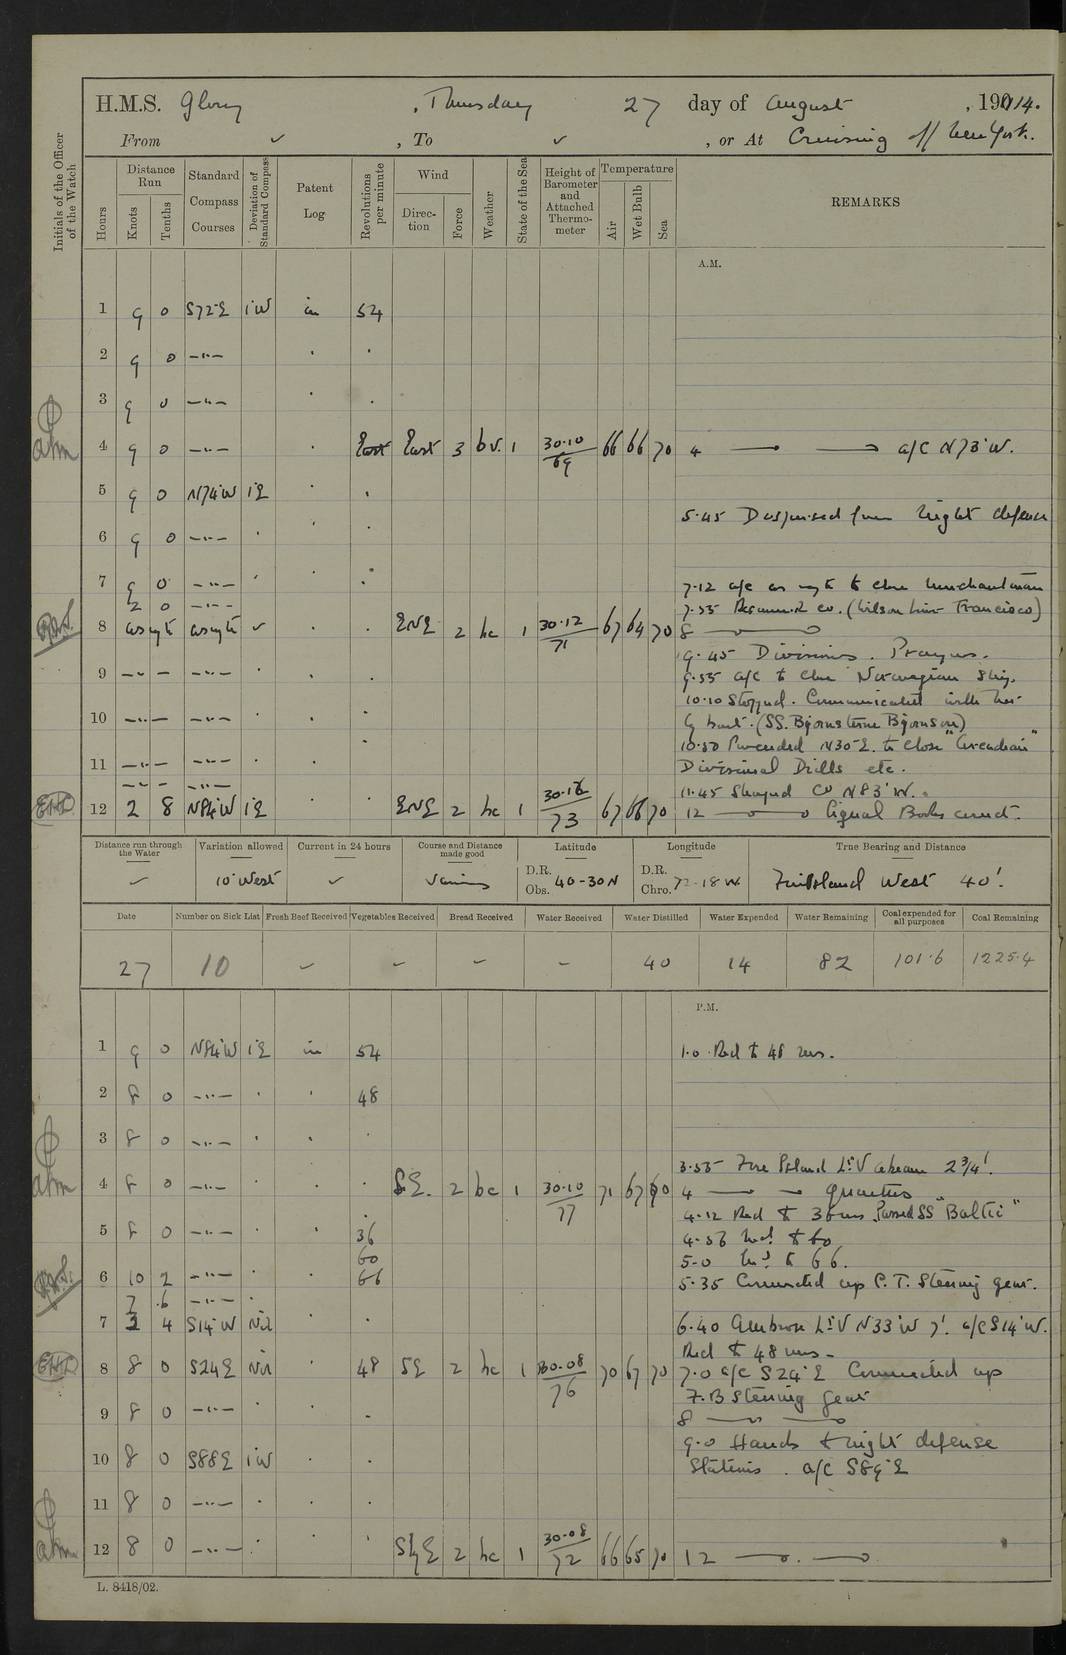 H.M.S. Glory, Thursday 27 day of August, 1914.
From ✓, To ✓, or At Cruising off New York.
Initials of the Officer of the Watch
Hours
Distance Run
Knots
Tenths
Standard Compass Courses
Deviation of Standard Compass
Patent Log
Revolutions per minute
Wind
Direction
Force
Weather
State of the Sea
Height of Barometer and Attached Thermometer
Temperature
Air
Wet Bulb
Sea
REMARKS
A.M.
1 9 0 S72°E 1°W in 54
2 9 0 —..—
3 9 0 —..—
4 9 0 —..— East East 3 bv. 1 30.10/69 66 66 70 4 a/c N73°W.
5 9 0 N74°W 1°E
5.45 Dispersed from Night defence
6 9 0 —..—
7 9 0 —..— 7.12 a/c as req to close merchantman
2 0 —..— 7.55 Resumed co. (Wilson Line Francisco)
8 as req as req ✓ ENE 2 bc 1 30.12/71 67 64 70 8
9.45 Divisions. Prayers.
9 —..— —..— 9.55 a/c to close Norwegian Ship.
10.10 Stopped. Communicated with her
10 —..— —..— by boat. (SS. Bjornsterne Bjornson)
10.50 Proceeded N30°E. to close
11 —..— —..— Divisional Drills etc.
—..— —..— 11.45 Shaped Co N83°W.
12 2 8 N84°W 1°E ENE 2 bc 1 30.16/73 67 66 70 12 Signal Books correct.
Distance run through the Water ✓
Variation allowed 10° West
Current in 24 hours ✓
Course and Distance made good Various
Latitude D.R. Obs. 40-30N
Longitude D.R. Chro. 72-18W
True Bearing and Distance Fire Island West 40'.
Date
Number on Sick List
Fresh Beef Received
Vegetables Received
Bread Received
Water Received
Water Distilled
Water Expended
Water Remaining
Coal expended for all purposes
Coal Remaining
27 10 ✓ ✓ ✓ ✓ 40 14 82 101.6 1225.4
P.M.
1 9 0 N84°W 1°E in 54 1.0 Red to 48 revs.
2 8 0 —..— 48
3 8 0 —..—
3.55 Fire Island Lt V abeam 2¾'.
4 8 0 —..— SE. 2 bc 1 30.10/77 71 67 70 4 Quarters
4.12 Red to 36 revs. Passed SS "Baltic"
5 8 0 —..— 36 4.56 Incd to 60
60 5-0 Incd to 66.
6 10 2 —..— 66 5.35 Connected up P.T. Steering gear.
7 .6 —..—
7 3 4 S14°W Nil 6.40 Ambrose Lt V N33°W 7'. a/c S14°W.
Red to 48 revs.
8 8 0 S24E Nil 48 SE 2 bc 1 30.08/76 70 67 70 7.0 a/c S24°E Connected up
F.B Steering gear
9 8 0 —..— 8
9.0 Hands to night defense
10 8 0 S88E 1°W Stations. a/c S89°E
11 8 0 —..—
12 8 0 —..— SbyE 2 bc 1 30.08/72 66 65 70 12
L. 8418/02.